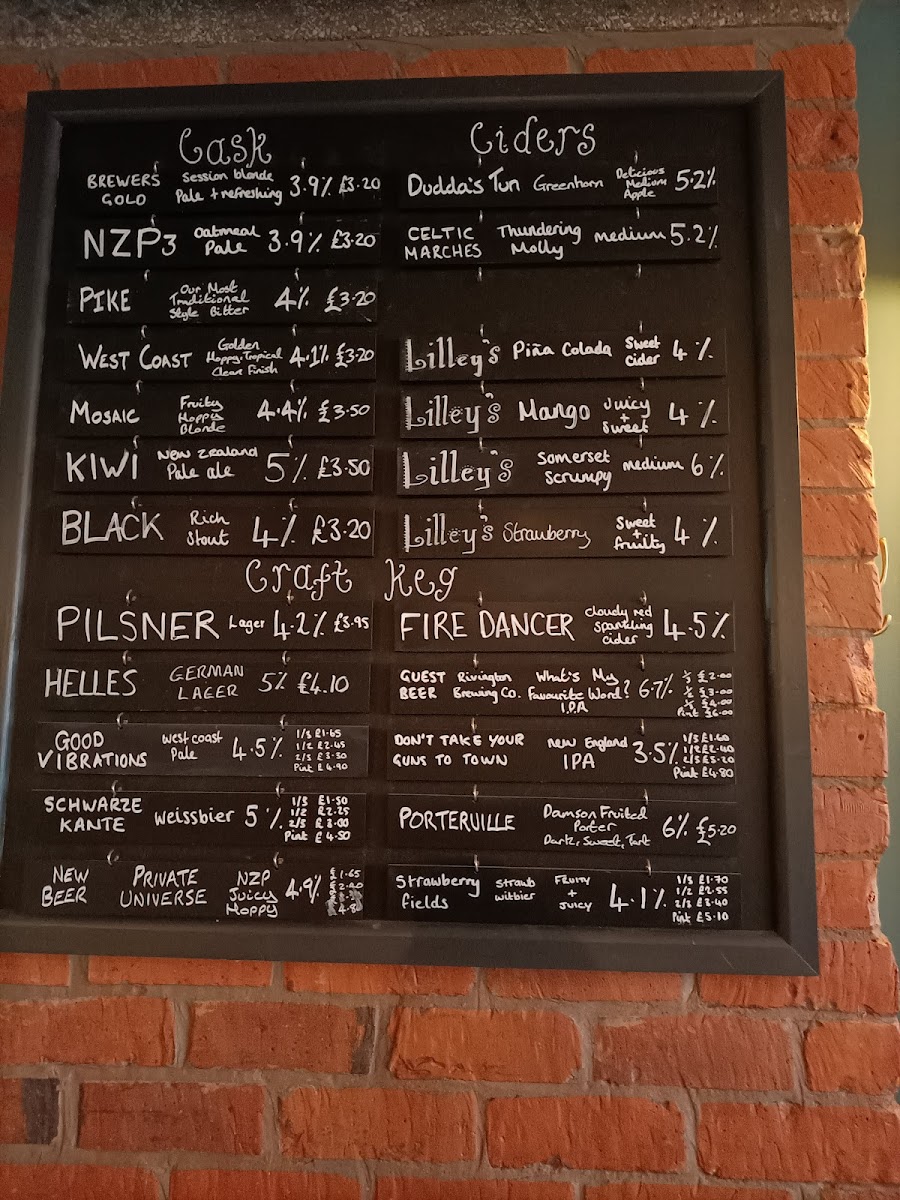 Cask
BREWERS
GOLD
Session blonde
Pale + refreshing
3.9% £3.20
NZP3
Oatmeal
Pale
3.9% £3.20
PIKE
Our Most
Traditional
Style Bitter
4% £3.20
WEST COAST
Golden
Hoppy, Tropical
Clean Finish
4.1% £3.20
MOSAIC
Fruity
Hoppy
Blonde
4.4% £3.50
KIWI
New Zealand
Pale ale
5% £3.50
BLACK
Rich
Stout
4% £3.20
Ciders
Dudda's Tun
Greenhorn
Delicious
Medium
Apple
5.2%
CELTIC
MARCHES
Thundering
Molly
medium 5.2%
Lilley's Piña Colada
Sweet
cider
4%
Lilley's Mango
Juicy
+
Sweet
4%
Lilley's
Somerset
Scrumpy
medium 6%
Lilley's Strawberry
Sweet
+
fruity
4%
Craft Keg
PILSNER Lager 4.2% £3.95
HELLES
GERMAN
LAGER
5% £4.10
GOOD
VIBRATIONS
West coast
Pale
4.5%
1/3 £1.65
1/2 £2.45
2/3 £3.30
Pint £4.90
SCHWARZE
KANTE
Weissbier 5%
1/3 £1.50
1/2 £2.25
2/3 £3.00
Pint £4.50
NEW
BEER
PRIVATE
UNIVERSE
NZP
Juicy
Hoppy
4.9%
1.65
FIRE DANCER
cloudy red
sparkling
cider
4.5%
GUEST
BEER
Rivington
Brewing Co.
What's My
Favourite Word?
I.P.A
6.7%
1/3 £2.00
1/2 £3.00
2/3 £4.00
Pint £6.00
DON'T TAKE YOUR
GUNS TO TOWN
New England
IPA
3.5%
1/3 £1.60
1/2 £2.40
2/3 £3.20
Pint £4.80
PORTERVILLE
Damson Fruited
Porter
Dark, Sweet, Tart
6% £5.20
Strawberry
fields
Strawb
witbier
FRUITY
+
JUICY
4.1%
1/3 £1.70
1/2 £2.55
2/3 £3.40
Pint £5.10